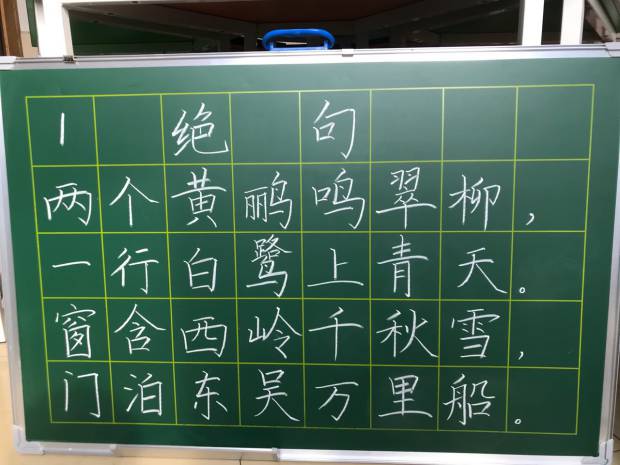 1 绝 句
两个黄鹂鸣翠柳，
一行白鹭上青天。
窗含西岭千秋雪，
门泊东吴万里船。